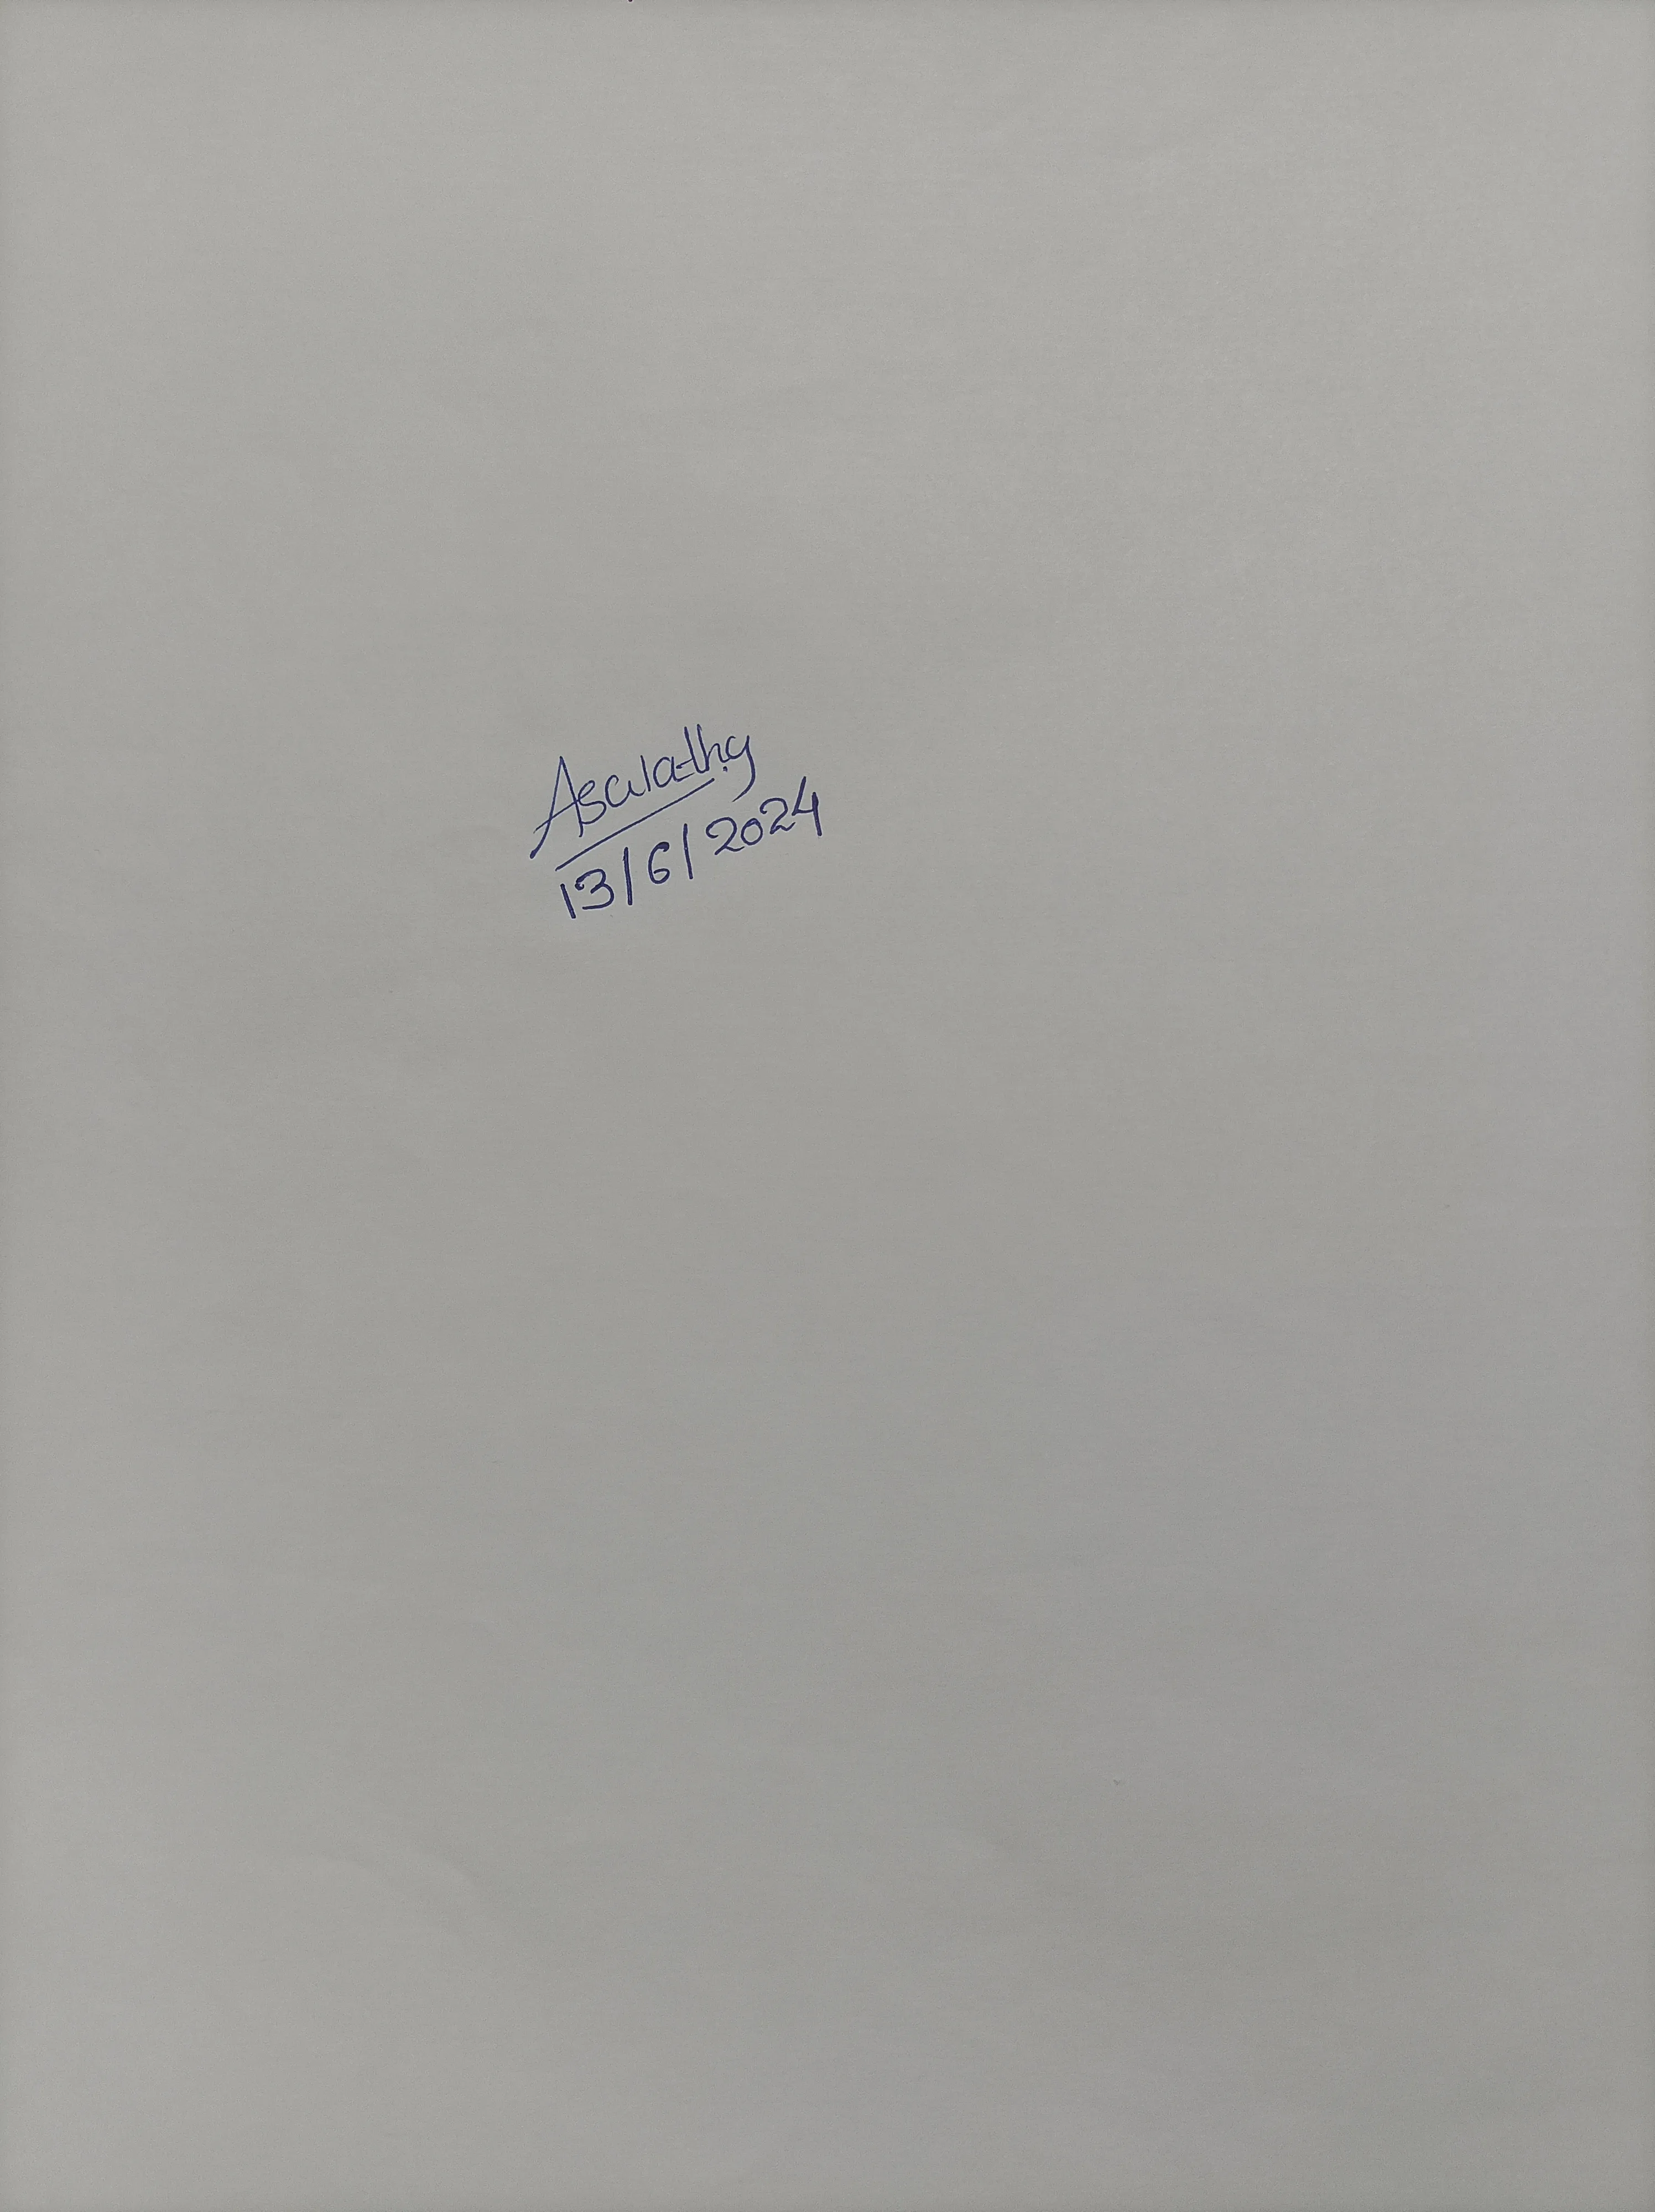 Asulathy
13/6/2024